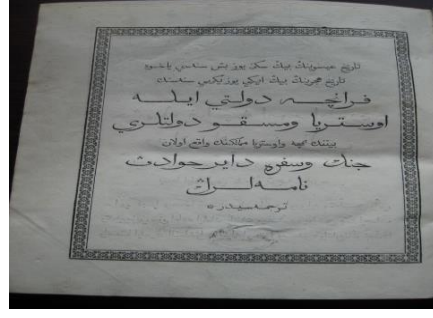 تاريخ عيسوينك بيك سكز يوز بش سنه سي ياخود
تاريخ هجرينك بيك ايكي يوز يكرمي سنه سنك
فرانچه دولتي ايله
اوستريا ومسقو دولتلري
بيننده نمچه واوستريا مملكتنده واقع اولان
جنك وسفره داير حوادث
نامه لرك
ترجمه سيدر